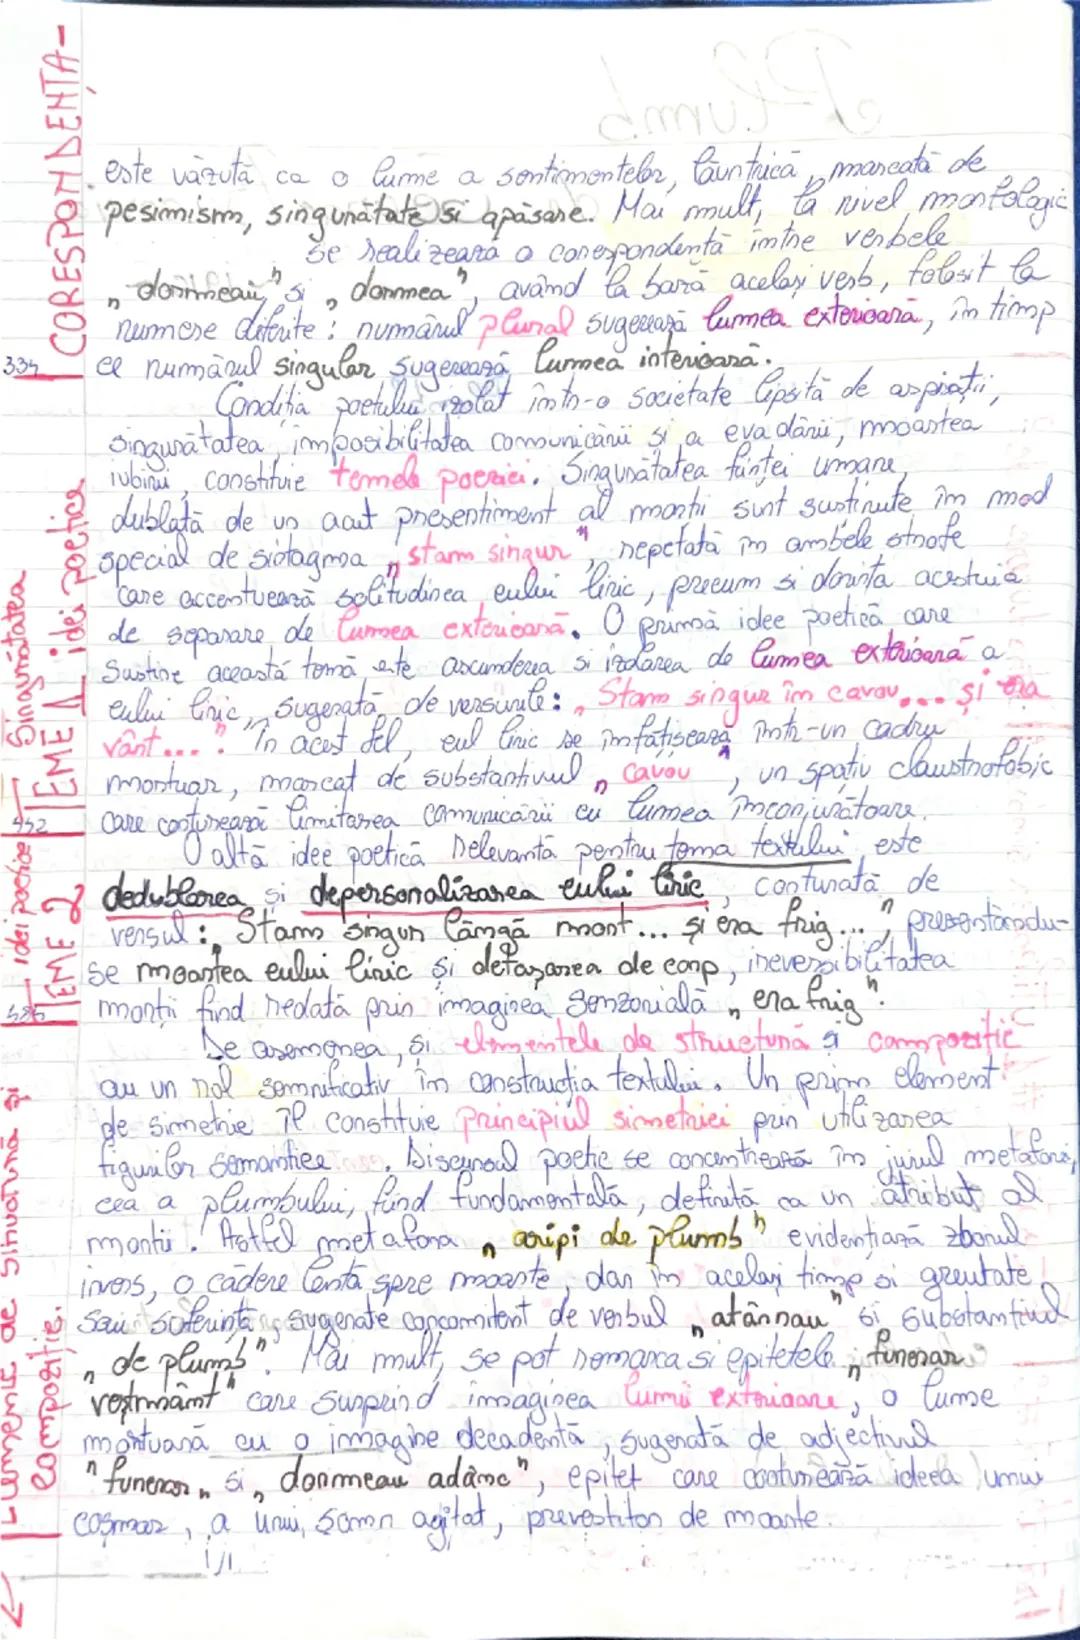 este văzută ca o lume a sentimentelor, lăuntrică, marcată de
pesimism, singurătate și apăsare. Mai mult, la nivel morfologic
se realizează o corespondență între verbele
„dormeau" și „dormea", având la bază același verb, folosit la
numere diferite: numărul plural sugerează lumea exterioară, în timp
ce numărul singular sugerează lumea interioară.
Condiția poetului izolat într-o societate lipsită de aspirații,
singurătatea, imposibilitatea comunicării și a evadării, moartea
iubirii, constituie temele poeziei. Singurătatea ființei umane,
dublată de un acut presentiment al morții sunt susținute în mod
special de sintagma „stam singur", repetată în ambele strofe
care accentuează solitudinea eului liric, precum și dorința acestuia
de separare de lumea exterioară. O primă idee poetică care
susține această temă, este ascunderea și izolarea de lumea exterioară a
eului liric, sugerată de versurile: „Stam singur în cavou... și era
vânt...". În acest fel, eul liric se înfățisează într-un cadru
mortuar, marcat de substantivul „cavou", un spațiu claustrofobic
care conturează limitarea comunicării cu lumea înconjurătoare.
O altă idee poetică relevantă pentru tema textului este
dedublarea și depersonalizarea eului liric, conturată de
versul: „Stam singur lângă mort... și era frig...", prezentându-
se moartea eului liric și detașarea de corp, ireversibilitatea
morții fiind redată prin imaginea senzorială „era frig".
De asemenea, și elementele de structură și compoziție
au un rol semnificativ în construcția textului. Un prim element
de simetrie îl constituie principiul simetriei prin utilizarea
figurilor semantice. Discursul poetic se concentrează în jurul metaforei,
cea a plumbului, fiind fundamentală, definită ca un atribut al
morții. Astfel metafora „aripi de plumb" evidențiază zborul
invers, o cădere lentă spre moarte, dar în același timp și greutate
sau suferință, sugerate concomitent de verbul „atârnau" și substantivul
„de plumb". Mai mult, se pot remarca și epitetele „funerar
vestmânt" care surprind imaginea lumii exterioare, o lume
mortuară cu o imagine decadentă, sugerată de adjectivul
"funerar„ și „dormeau adânc", epitet care conturează ideea unui
coșmar, a unui somn agitat, prevestitor de moarte.
CORESPONDENȚA-
334
Singurătatea
TEME 1 idei poetice
442
idei poetice
TEME 2
Elemente de structură și
compoziție.
Plumb